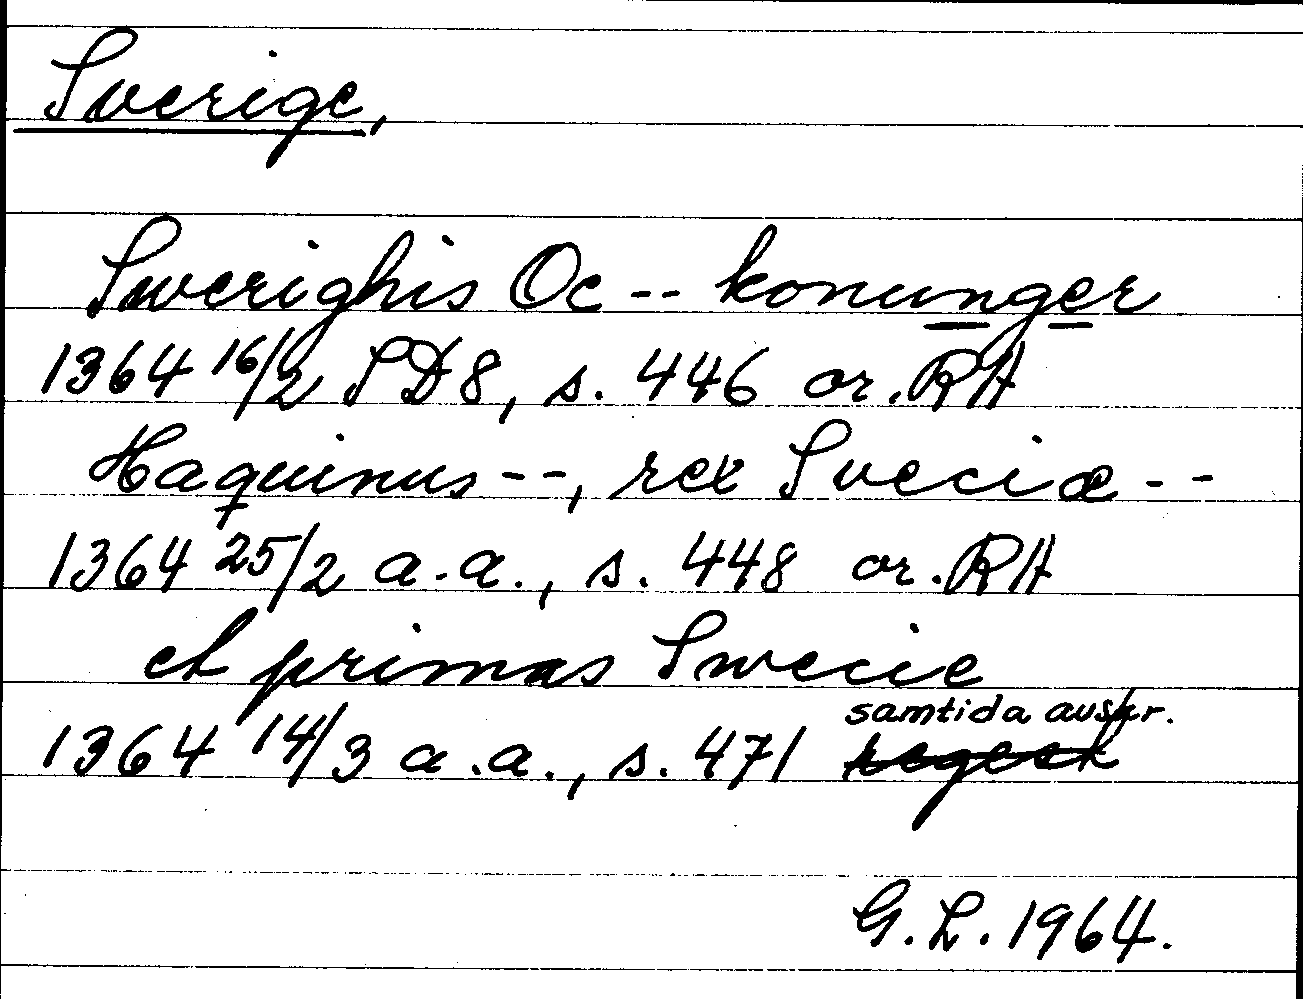 Sverige,
Swerighis Oc -- konunger
1364 16/2 SD8, s. 446 or. RA
Haquinus --, rex Sveciæ --
1364 25/2 a.a., s. 448 or. RA
et primas Swecie
samtida avskr.
1364 14/3 a.a., s. 471 regest
G.L. 1964.